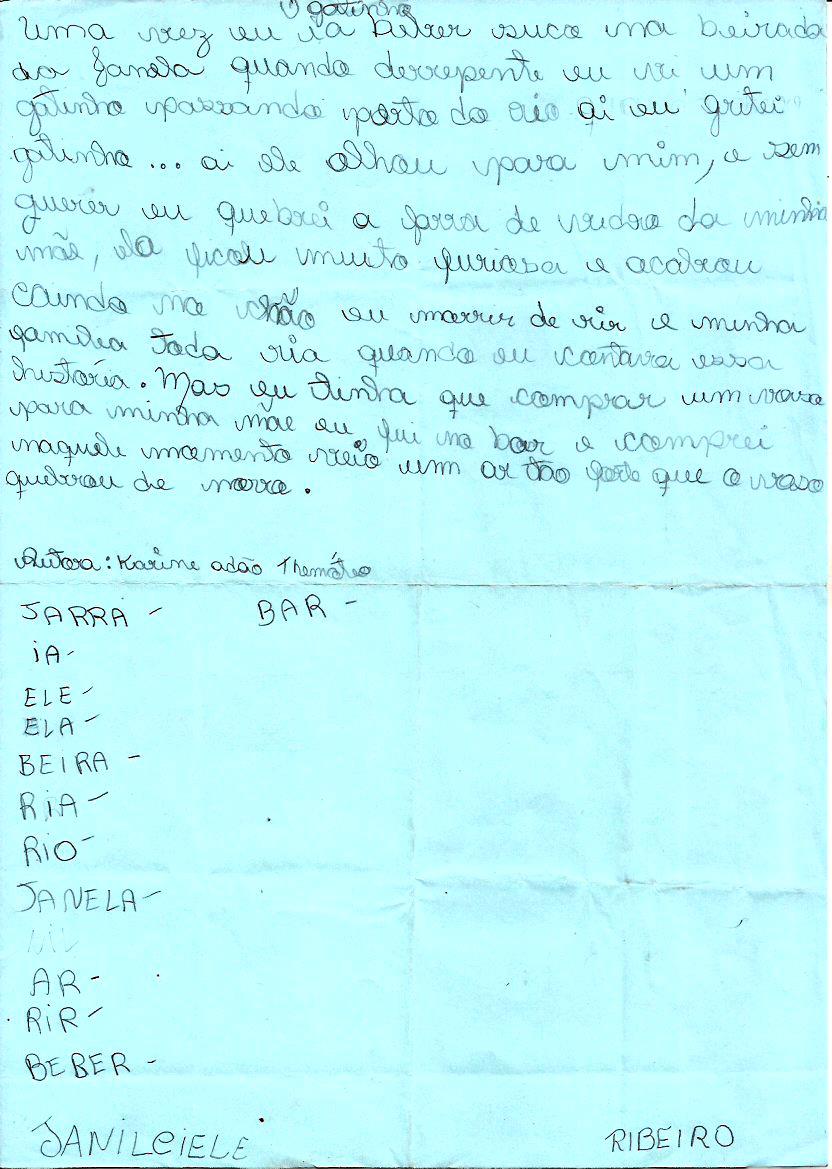 O gatinho
Uma vez eu ia beber suco na beirada
da janela quando derrepente eu vi um
gatinho passando perto do rio ai eu gritei
gatinho... ai ele olhou para mim, e sem
querer eu quebrei a jarra de vidro da minha
mãe, ela ficou muito furiosa e acabou
caindo no chão eu morrir de rir e minha
familia toda ria quando eu contava essa
história. Mas eu tinha que comprar um vaso
para minha mãe eu fui no bar e comprei
naquele momento veio um ar tão forte que o vaso
quebrou de novo.
Autora: Karine adão
JARRA - BAR -
iA-
ELE-
ELA-
BEIRA -
RiA-
RiO-
JANELA-
AR-
RiR-
BEBER -
JANILCIELE RIBEIRO